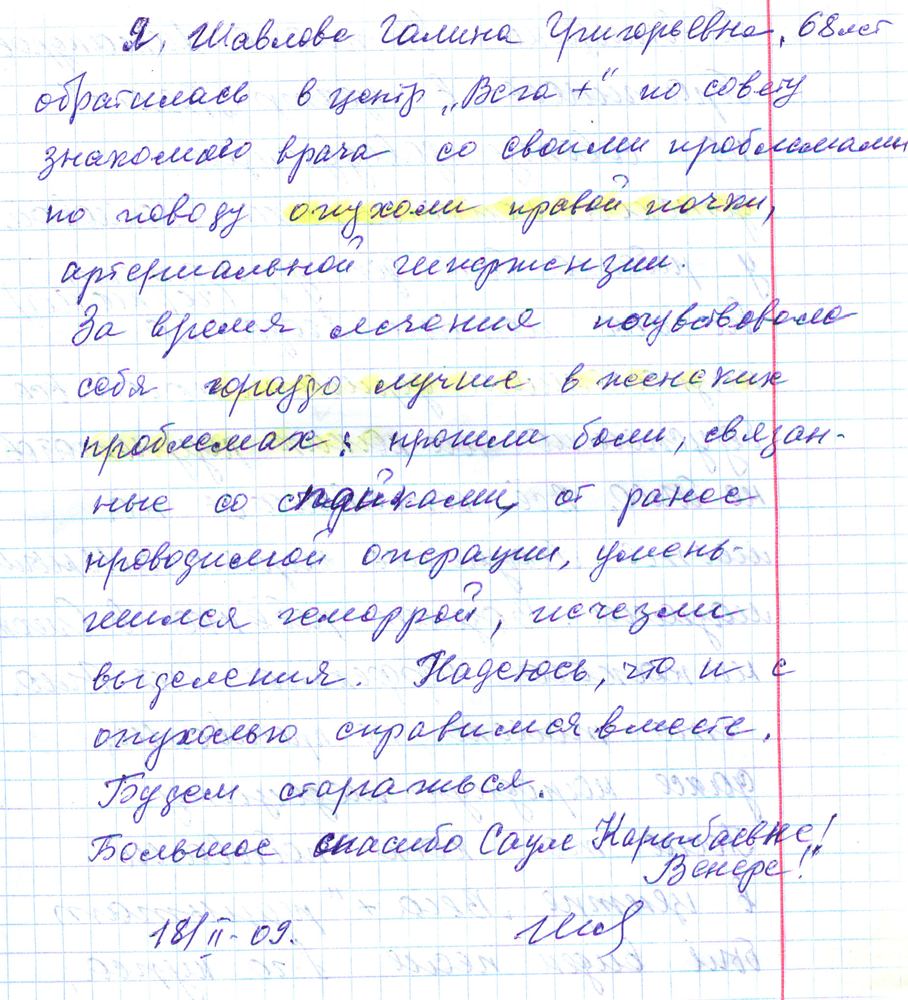 Я, Шавлова Галина Григорьевна, 68 лет
обратилась в центр „Вега +" по совету
знакомого врача со своими проблемами
по поводу опухоли правой почки,
артериальной гипертензии.
За время лечения почувствовала
себя гораздо лучше в женских
проблемах: прошли боли, связан-
ные со спайками, от ранее
проводимой операции, умень
шился геморрой, исчезли
выделения. Надеюсь, что и с
опухолью справимся вместе.
Будем стараться.
Большое спасибо Сауле Карыбаевне!
Венере!"
18/II-09.